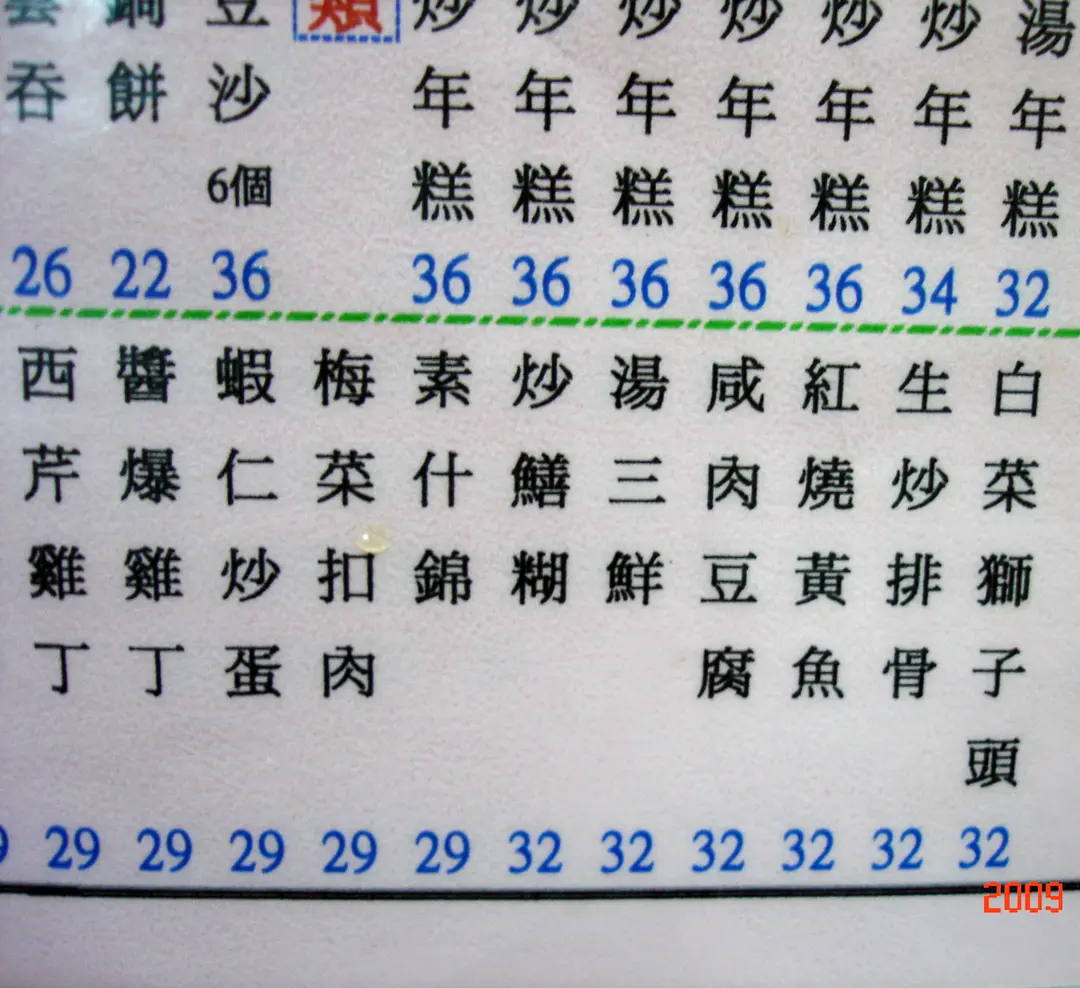 湯年糕 32
炒年糕 34
炒年糕 36
炒年糕 36
炒年糕 36
炒年糕 36
炒年糕 36
類
豆沙6個 36
鍋餅 22
雲吞 26
白菜獅子頭 32
生炒排骨 32
紅燒黃魚 32
咸肉豆腐 32
湯三鮮 32
炒鱔糊 32
素什錦 29
梅菜扣肉 29
蝦仁炒蛋 29
醬爆雞丁 29
西芹雞丁 29
2009